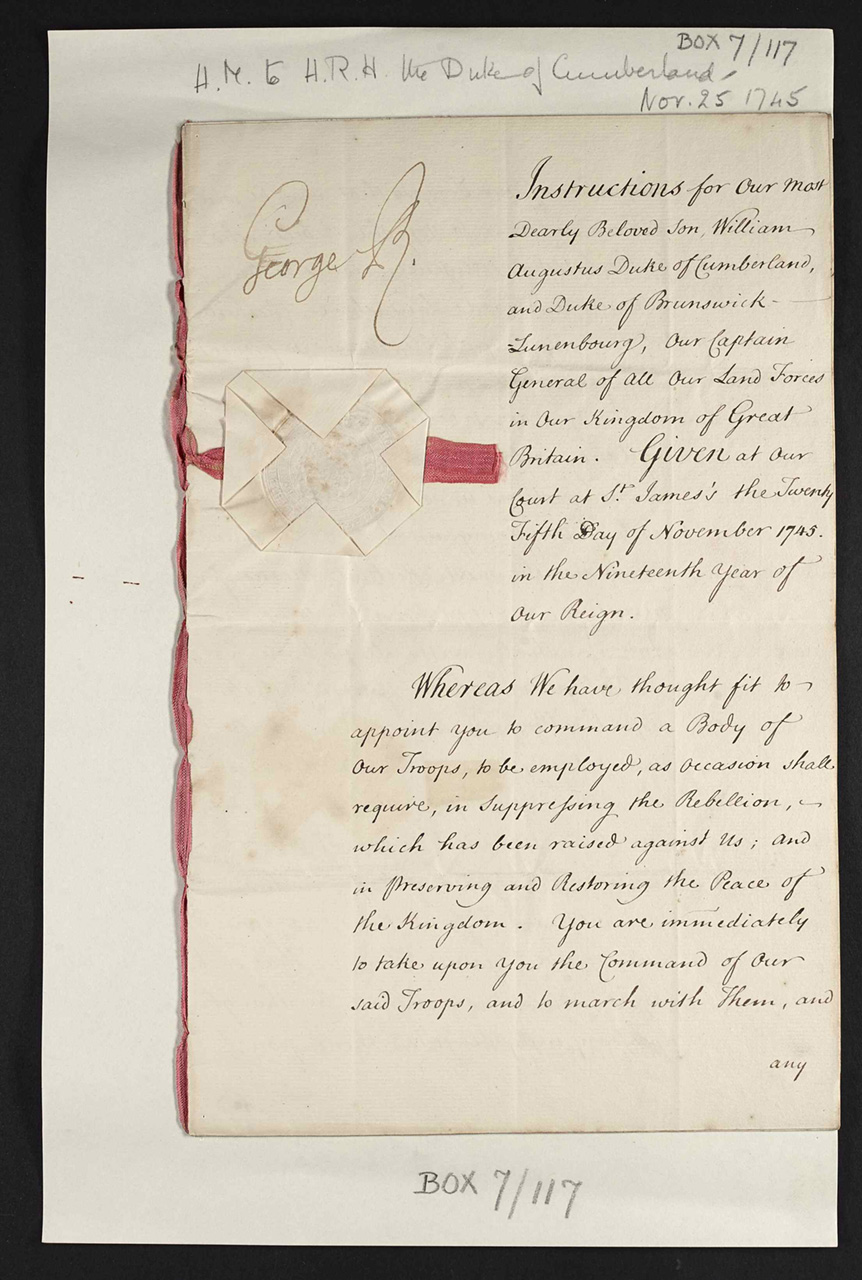 BOX 7/117
H.M. to H.R.H. the Duke of Cumberland
Nov. 25 1745
George R.
Instructions for Our Most
Dearly Beloved Son, William
Augustus Duke of Cumberland,
and Duke of Brunswick-
=Lunenbourg, Our Captain
General of all Our Land Forces
in Our Kingdom of Great
Britain. Given at Our
Court at St. James's the Twenty
Fifth Day of November 1745.
in the Nineteenth Year of
Our Reign.
Whereas We have thought fit to
appoint you to command a Body of
Our Troops, to be employed, as occasion shall
require, in suppressing the Rebellion,
which has been raised against Us; and
in Preserving and Restoring the Peace of
the Kingdom. You are immediately
to take upon you the Command of Our
said Troops, and to march with Them, and
any
BOX 7/117